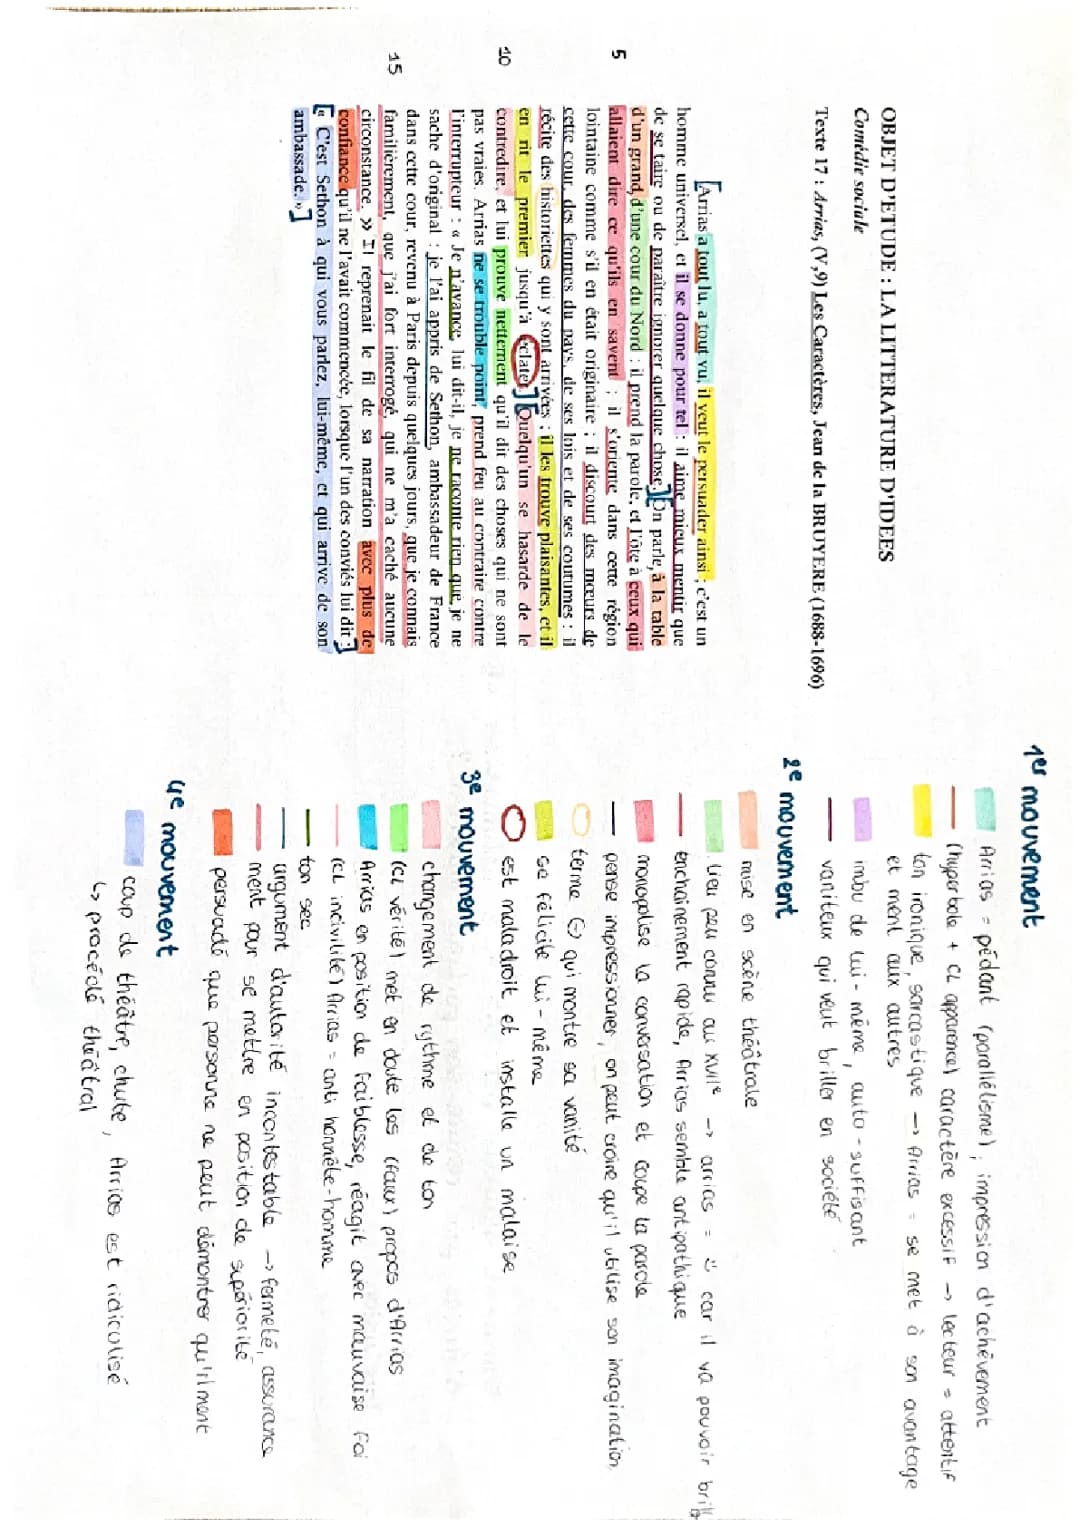 OBJET D'ETUDE : LA LITTERATURE D'IDEES
Comédie sociale
Texte 17 : Arrias, (V,9) Les Caractères, Jean de la BRUYERE (1688-1696)
[Arrias a tout lu, a tout vu, il veut le persuader ainsi ; c'est un
homme universel, et il se donne pour tel : il aime mieux mentir que
de se taire ou de paraître ignorer quelque chose.] [On parle, à la table
d'un grand, d'une cour du Nord : il prend la parole, et l'ôte à ceux qui
5 allaient dire ce qu'ils en savent ; il s'oriente dans cette région
lointaine comme s'il en était originaire ; il discourt des mœurs de
cette cour, des femmes du pays, de ses lois et de ses coutumes : il
récite des historiettes qui y sont arrivées ; il les trouve plaisantes, et il
en rit le premier jusqu'à éclater.] [Quelqu'un se hasarde de le
10 contredire, et lui prouve nettement qu'il dit des choses qui ne sont
pas vraies. Arrias ne se trouble point, prend feu au contraire contre
l'interrupteur : « Je n'avance, lui dit-il, je ne raconte rien que je ne
sache d'original : je l'ai appris de Sethon, ambassadeur de France
dans cette cour, revenu à Paris depuis quelques jours, que je connais
15 familièrement, que j'ai fort interrogé, qui ne m'a caché aucune
circonstance. » Il reprenait le fil de sa narration avec plus de
confiance qu'il ne l'avait commencée, lorsque l'un des conviés lui dit :]
[« C'est Sethon à qui vous parlez, lui-même, et qui arrive de son
ambassade. »]
1er mouvement
Arrias = pédant (parallélisme), impression d'achèvement
(hyperbole + CL apparence) caractère excessif → lecteur = attentif
ton ironique, sarcastique → Arrias = se met à son avantage
et ment aux autres
imbu de lui-même, auto-suffisant
vaniteux qui veut briller en société
2e mouvement
mise en scène théâtrale
lieu peu connu au XVIIe → arrias = ü car il va pouvoir brill
enchaînement rapide, Arrias semble antipathique
monopolise la conversation et coupe la parole
pense impressionner, on peut croire qu'il utilise son imagination.
terme ⊖ qui montre sa vanité
se félicite lui-même
est maladroit et installe un malaise
3e mouvement
changement de rythme et de ton
(CL vérité) met en doute les (faux) propos d'Arrias
Arrias en position de faiblesse, réagit avec mauvaise foi
(CL incivilité) Arrias = anti honnête-homme
ton sec
argument d'autorité incontestable → fermeté, assurance
ment pour se mettre en position de supériorité
persuadé que personne ne peut démontrer qu'il ment
4e mouvement
coup de théâtre, chute, Arrias est ridiculisé
↳ procédé théâtral